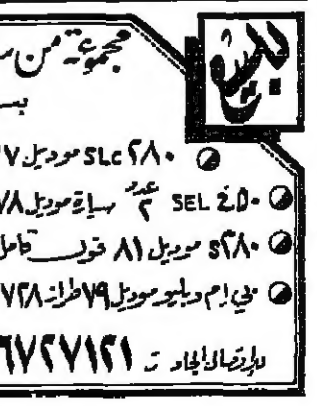 للبيع
مجموعة من
٢٨٠ SLC موديل ٧
٤٥٠ SEL عدد ٢ سيارة موديل ٧٨
٢٨٠S موديل ٨١ فول كامل
بي إم دبليو موديل ٧٩ طراز ٧٢٨
للإتصال الجاد ت ٦٧٢٧١٢١